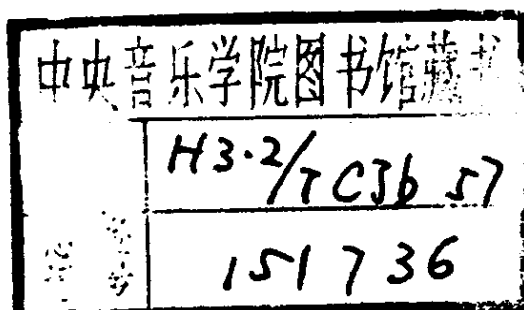 中央音乐学院图书馆藏书
H3·2/TC3b 57
151736